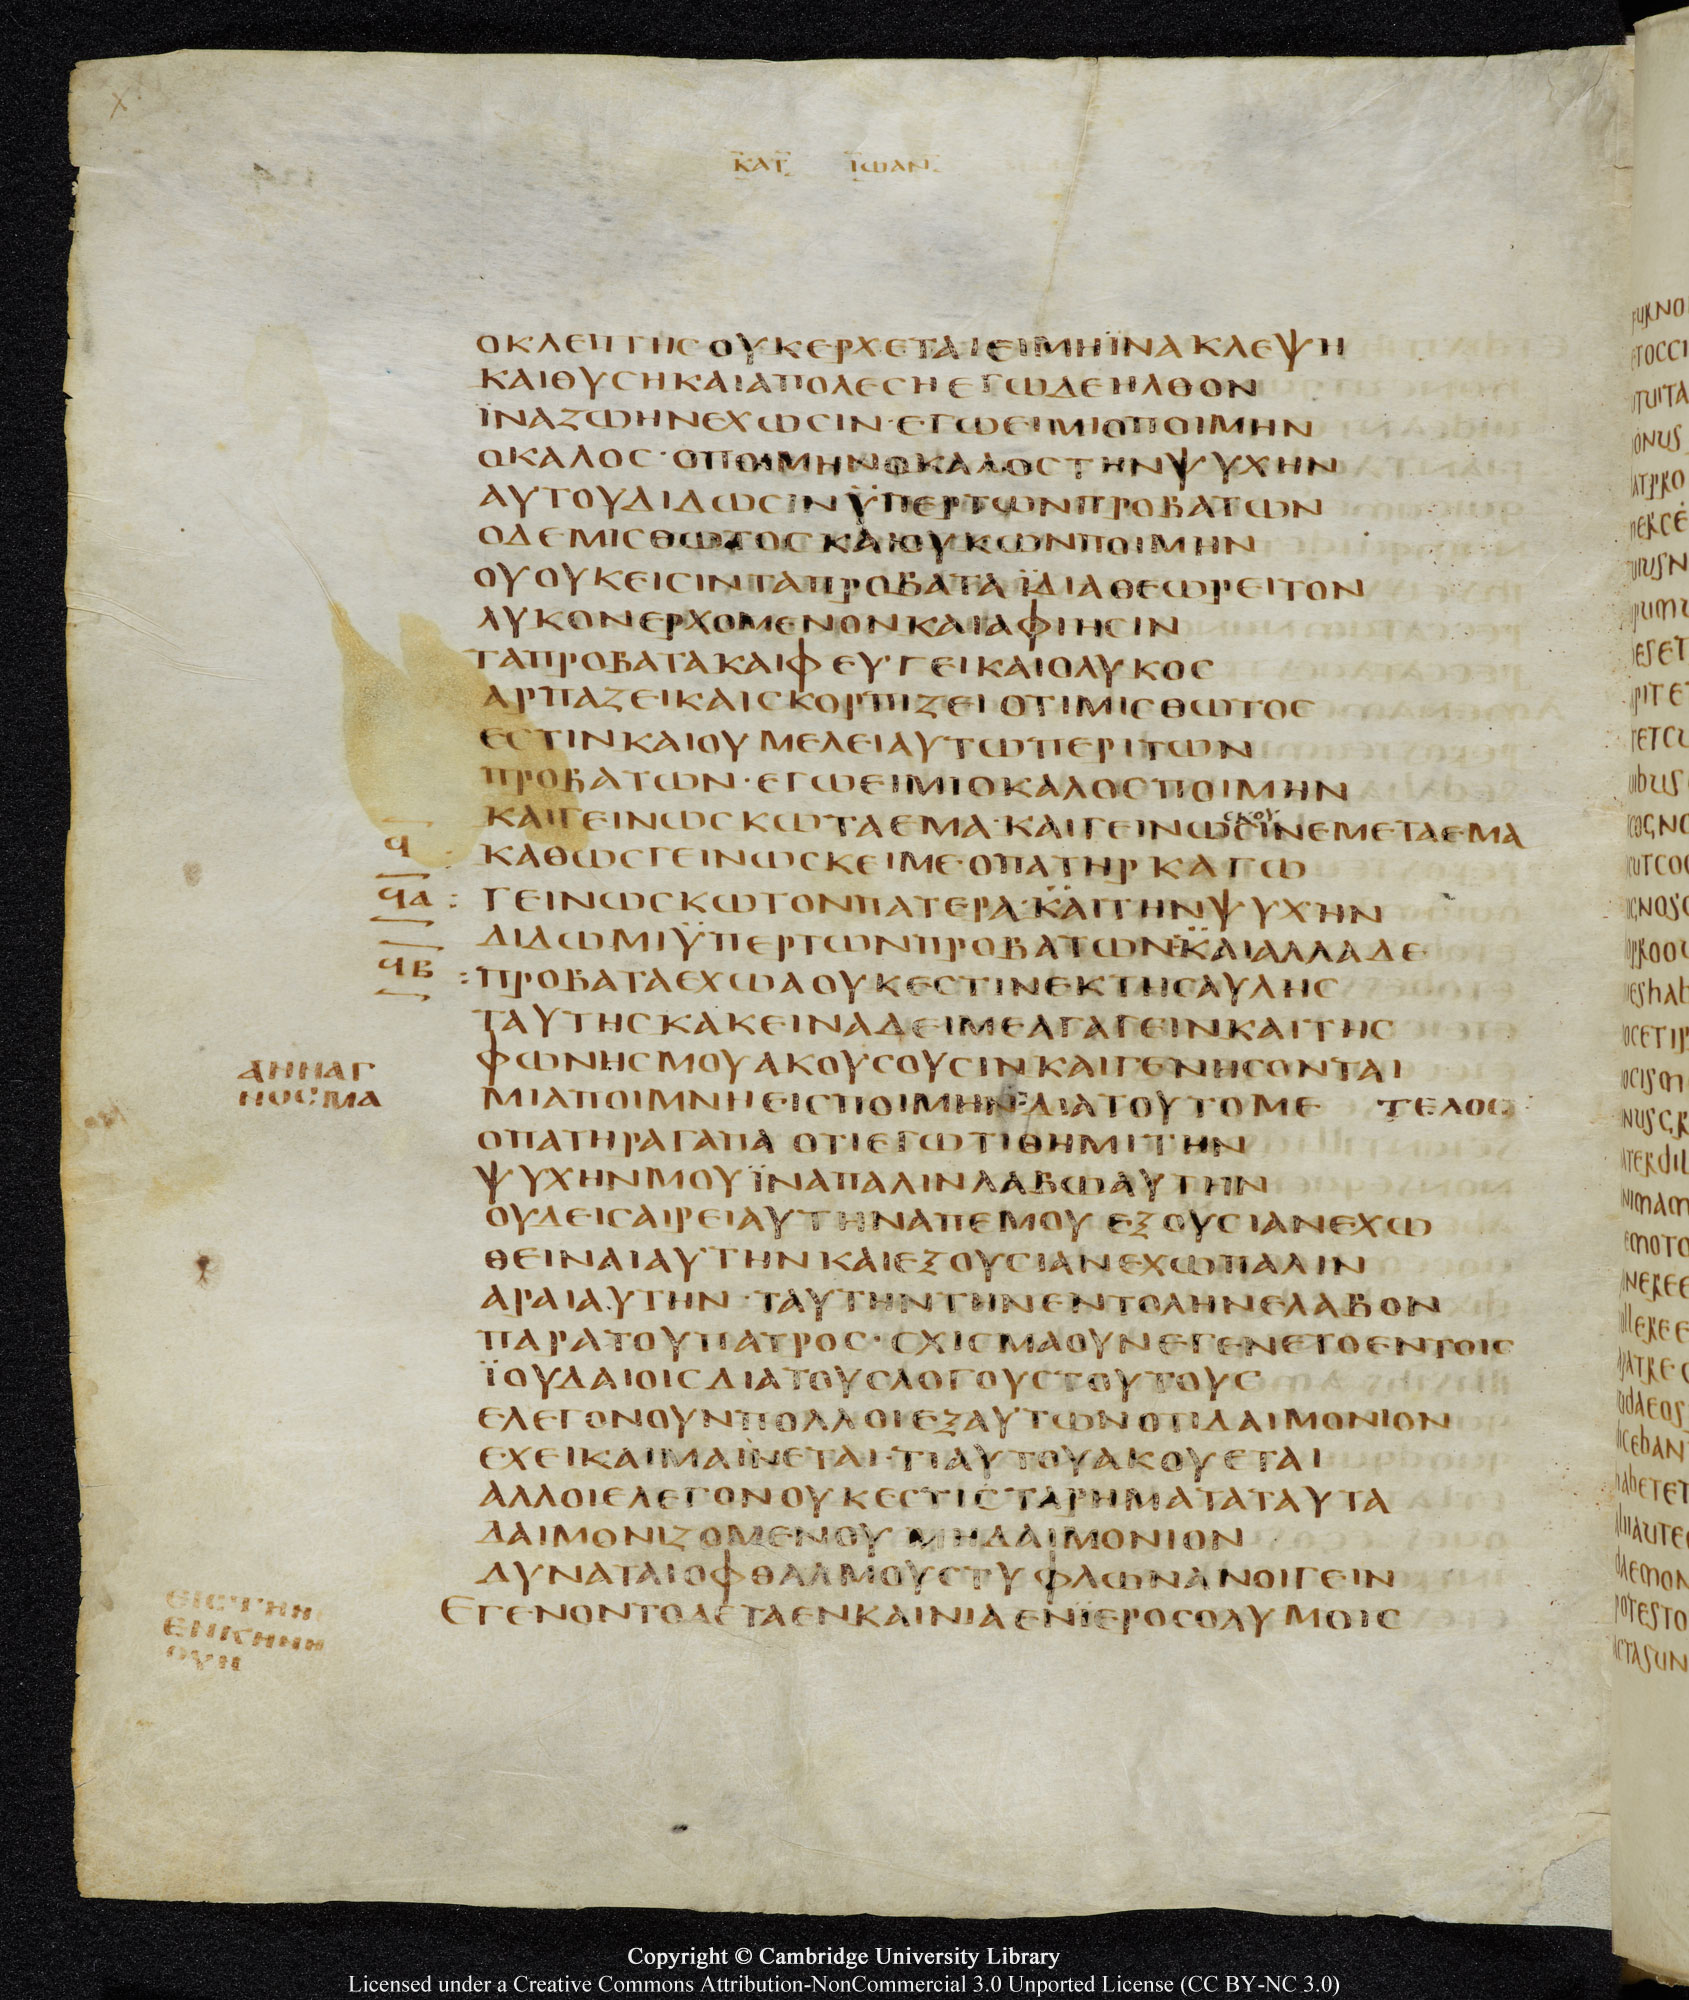 ΚΑΤ ΙΩΑΝ
ΟΚΛΕΠΤΗСΟΥΚΕΡΧΕΤΑΙΕΙΜΗΪΝΑΚΛΕΨΗ
ΚΑΙΘΥСΗΚΑΙΑΠΟΛΕСΗΕΓΩΔΕΗΛΘΟΝ
ΪΝΑΖΩΗΝΕΧΩСΙΝ·ΕΓΩΕΙΜΙΟΠΟΙΜΗΝ
ΟΚΑΛΟС·ΟΠΟΙΜΗΝΟΚΑΛΟСΤΗΝΨΥΧΗΝ
ΑΥΤΟΥΔΙΔΩСΙΝΫΠΕΡΤΩΝΠΡΟΒΑΤΩΝ
ΟΔΕΜΙСΘΩΤΟСΚΑΙΟΥΚΩΝΠΟΙΜΗΝ
ΟΥΟΥΚΕΙСΙΝΤΑΠΡΟΒΑΤΑΪΔΙΑΘΕΩΡΕΙΤΟΝ
ΛΥΚΟΝΕΡΧΟΜΕΝΟΝΚΑΙΑΦΙΗСΙΝ
ΤΑΠΡΟΒΑΤΑΚΑΙΦΕΥΓΕΙΚΑΙΟΛΥΚΟС
ΑΡΠΑΖΕΙΚΑΙСΚΟΡΠΙΖΕΙΟΤΙΜΙСΘΩΤΟС
ΕСΤΙΝΚΑΙΟΥΜΕΛΕΙΑΥΤΩΠΕΡΙΤΩΝ
ΠΡΟΒΑΤΩΝ·ΕΓΩΕΙΜΙΟΚΑΛΟСΠΟΙΜΗΝ
ΚΑΙΓΕΙΝΩСΚΩΤΑΕΜΑ·ΚΑΙΓΕΙΝΩСΙΝΕΜΕΤΑΕΜΑ
СΚΟΥ
Ϥ ΚΑΘΩСΓΕΙΝΩСΚΕΙΜΕ·ΟΠΑΤΗΡΚΑΓΩ
ϤΑ : ΓΕΙΝΩСΚΩΤΟΝΠΑΤΕΡΑ·ΚΑΙΤΗΝΨΥΧΗΝ
ΔΙΔΩΜΙΫΠΕΡΤΩΝΠΡΟΒΑΤΩΝΚΑΙΑΛΛΑΔΕ
ϤΒ : ΠΡΟΒΑΤΑΕΧΩΑΟΥΚΕСΤΙΝΕΚΤΗСΑΥΛΗС
ΤΑΥΤΗСΚΑΚΕΙΝΑΔΕΙΜΕΑΓΑΓΕΙΝΚΑΙΤΗС
ΦΩΝΗСΜΟΥΑΚΟΥСΟΥСΙΝΚΑΙΓΕΝΗСΟΝΤΑΙ
ΑΝΝΑΓ
ΝΟСΜΑ
ΜΙΑΠΟΙΜΝΗΕΙСΠΟΙΜΗΝΔΙΑΤΟΥΤΟΜΕ ΤΕΛΟС
ΟΠΑΤΗΡΑΓΑΠΑ ΟΤΙΕΓΩΤΙΘΗΜΙΤΗΝ
ΨΥΧΗΝΜΟΥΪΝΑΠΑΛΙΝΛΑΒΩΑΥΤΗΝ
ΟΥΔΕΙСΑΙΡΕΙΑΥΤΗΝΑΠΕΜΟΥ ΕΞΟΥСΙΑΝΕΧΩ
ΘΕΙΝΑΙΑΥΤΗΝΚΑΙΕΞΟΥСΙΑΝΕΧΩΠΑΛΙΝ
ΑΡΑΙΑΥΤΗΝ·ΤΑΥΤΗΝΤΗΝΕΝΤΟΛΗΝΕΛΑΒΟΝ
ΠΑΡΑΤΟΥΠΑΤΡΟС·СΧΙСΜΑΟΥΝΕΓΕΝΕΤΟΕΝΤΟΙС
ΪΟΥΔΑΙΟΙСΔΙΑΤΟΥСΛΟΓΟΥСΤΟΥΤΟΥС
ΕΛΕΓΟΝΟΥΝΠΟΛΛΟΙΕΞΑΥΤΩΝΟΤΙΔΑΙΜΟΝΙΟΝ
ΕΧΕΙΚΑΙΜΑΪΝΕΤΑΙ·ΤΙΑΥΤΟΥΑΚΟΥΕΤΑΙ
ΑΛΛΟΙΕΛΕΓΟΝΟΥΚΕСΤΙСΤΑΡΗΜΑΤΑΤΑΥΤΑ
ΔΑΙΜΟΝΙΖΟΜΕΝΟΥ ΜΗΔΑΙΜΟΝΙΟΝ
ΔΥΝΑΤΑΙΟΦΘΑΛΜΟΥСΤΥΦΛΩΝΑΝΟΙΓΕΙΝ
ΕΓΕΝΟΝΤΟΔΕΤΑΕΝΚΑΙΝΙΑΕΝΪΕΡΟСΟΛΥΜΟΙС
Copyright © Cambridge University Library
Licensed under a Creative Commons Attribution-NonCommercial 3.0 Unported License (CC BY-NC 3.0)